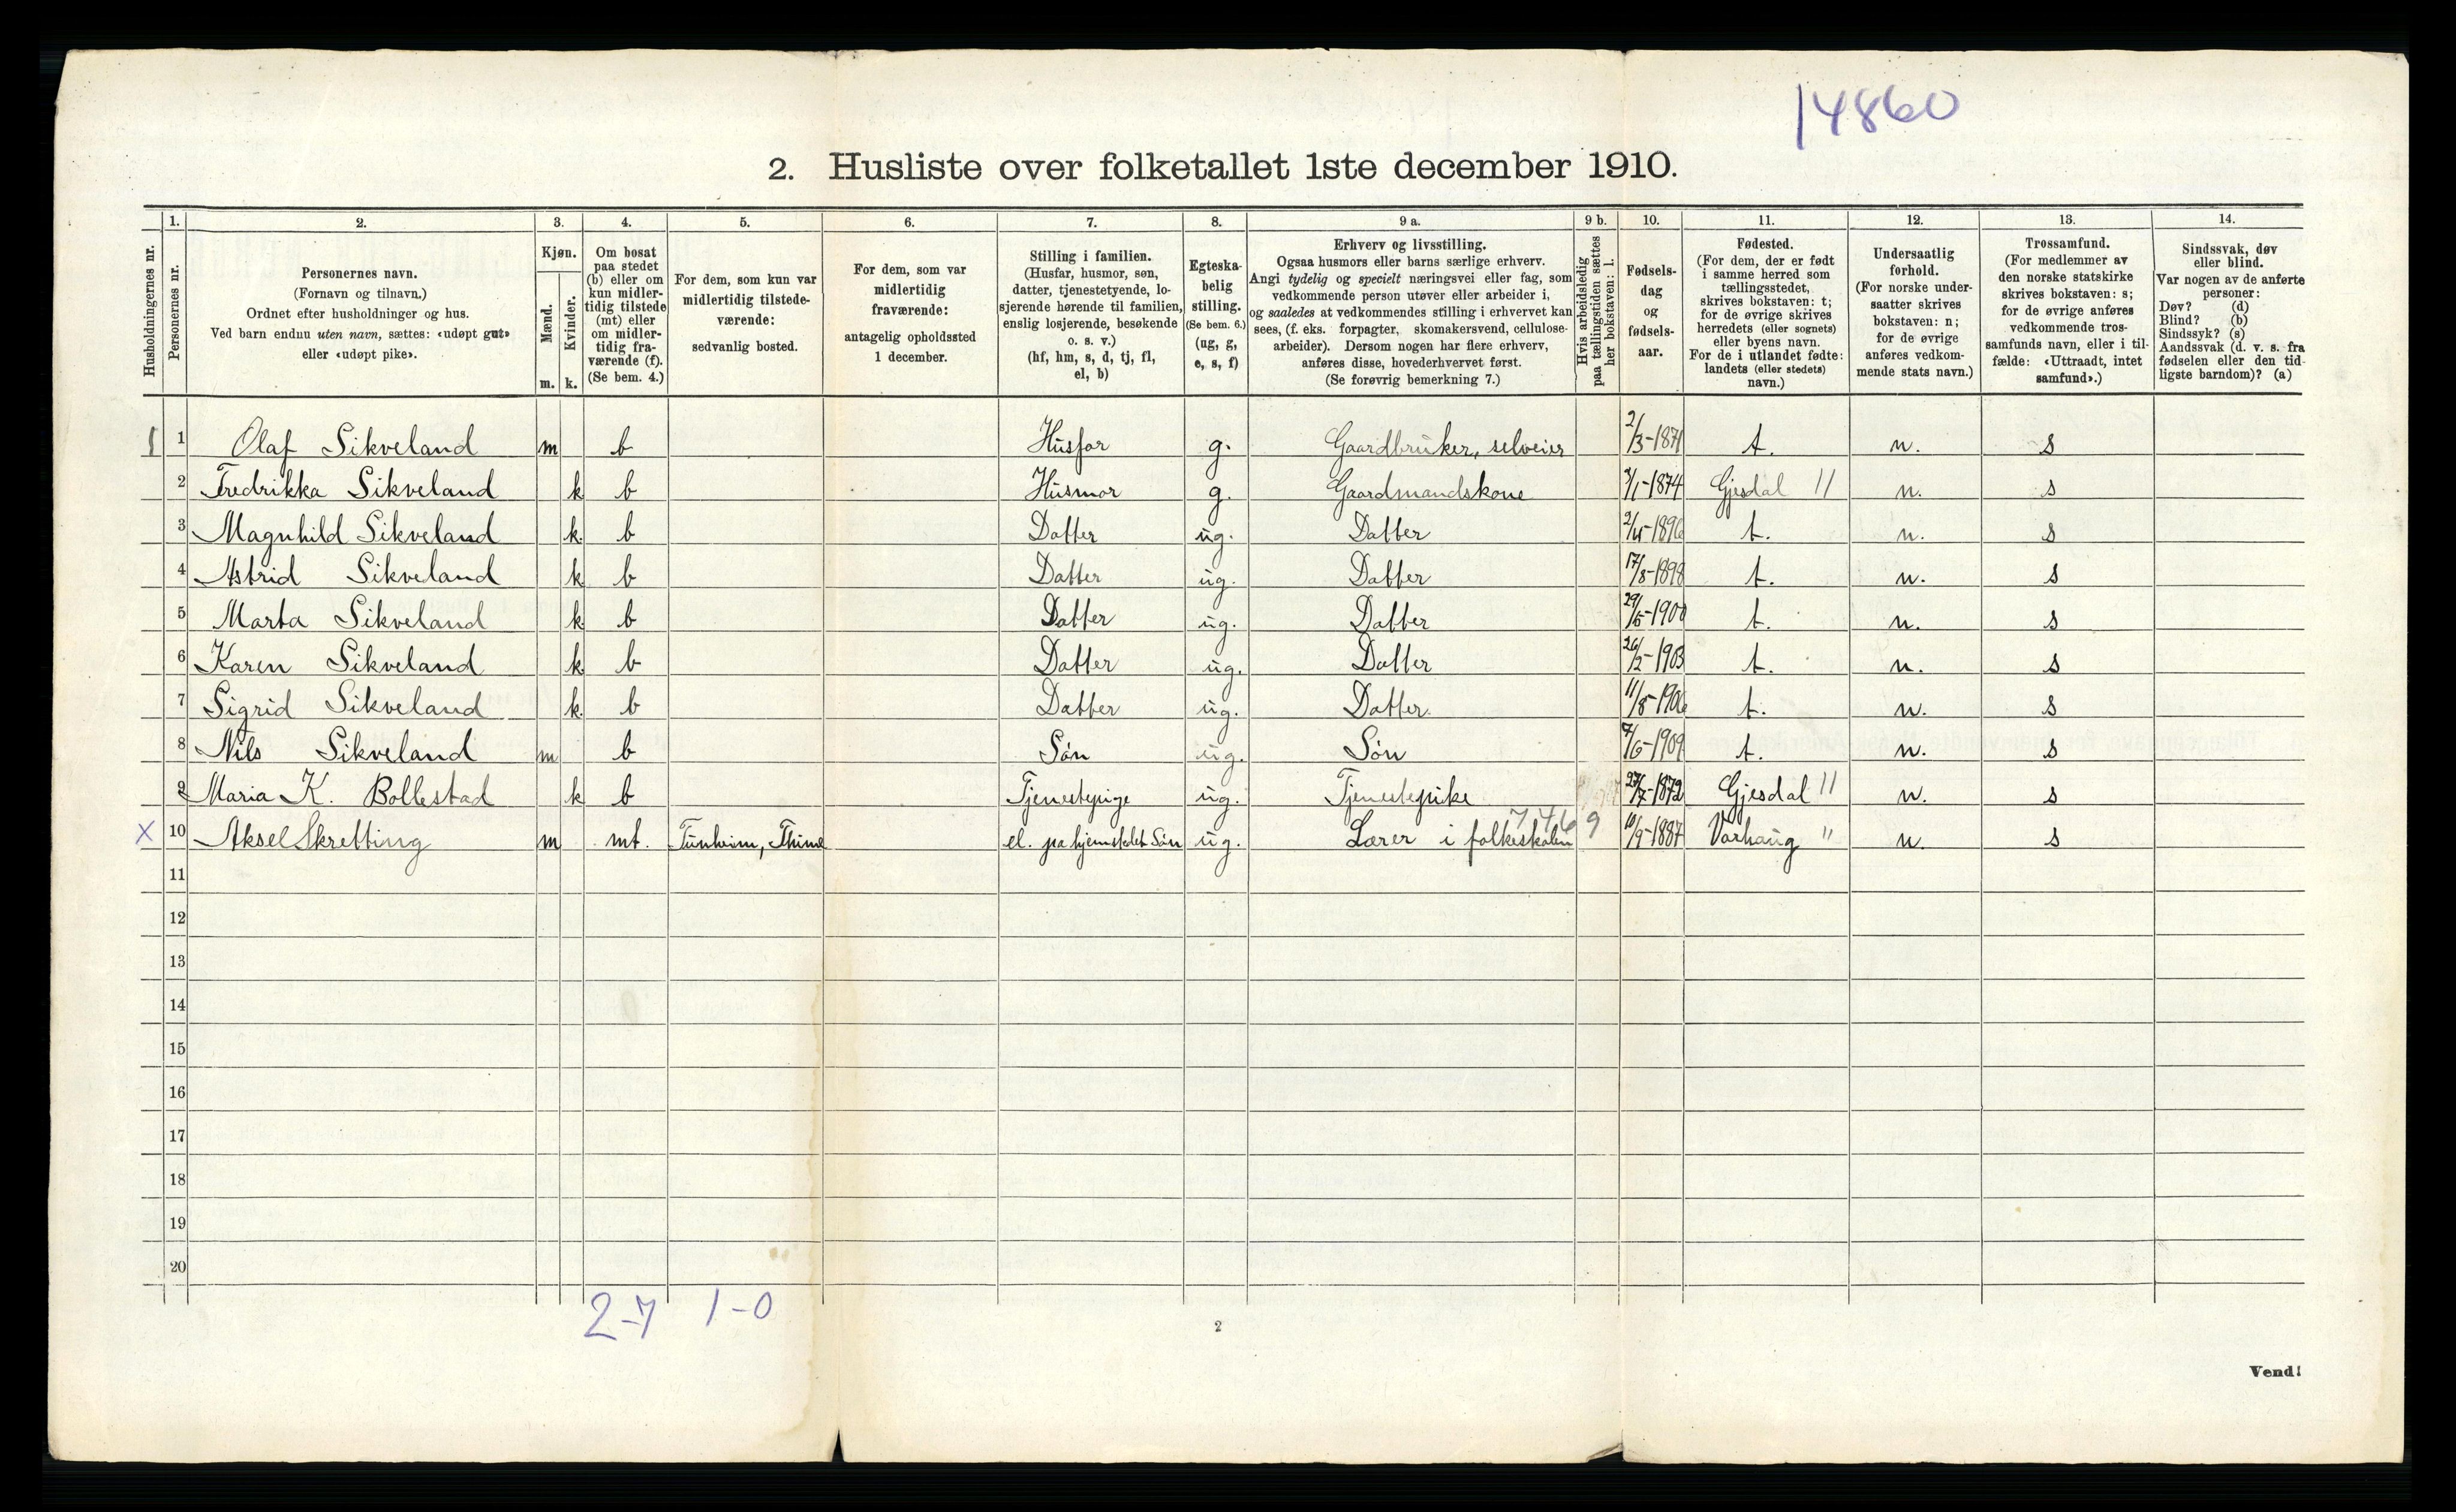 14860
2. Husliste over folketallet 1ste december 1910.
Husholdningernes nr.
1. Personernes nr.
2. Personernes navn. (Fornavn og tilnavn.) Ordnet efter husholdninger og hus. Ved barn endnu uten navn, sættes: «udøpt gut» eller «udøpt pike».
3. Kjøn. Mænd. m. Kvinder. k.
4. Om bosat paa stedet (b) eller om kun midlertidig tilstede (mt) eller om midlertidig fraværende (f). (Se bem. 4.)
5. For dem, som kun var midlertidig tilstedeværende: sedvanlig bosted.
6. For dem, som var midlertidig fraværende: antagelig opholdssted 1 december.
7. Stilling i familien. (Husfar, husmor, søn, datter, tjenestetyende, losjerende hørende til familien, enslig losjerende, besøkende o. s. v.) (hf, hm, s, d, tj, fl, el, b)
8. Egteskabelig stilling. (Se bem. 6.) (ug, g, e, s, f)
9 a. Erhverv og livsstilling. Ogsaa husmors eller barns særlige erhverv. Angi tydelig og specielt næringsvei eller fag, som vedkommende person utøver eller arbeider i, og saaledes at vedkommendes stilling i erhvervet kan sees, (f. eks. forpagter, skomakersvend, cellulosearbeider). Dersom nogen har flere erhverv, anføres disse, hovederhvervet først. (Se forøvrig bemerkning 7.)
9 b. Hvis arbeidsledig paa tællingstiden sættes her bokstaven: l.
10. Fødselsdag og fødselsaar.
11. Fødested. (For dem, der er født i samme herred som tællingsstedet, skrives bokstaven: t; for de øvrige skrives herredets (eller sognets) eller byens navn. For de i utlandet fødte: landets (eller stedets) navn.)
12. Undersaatlig forhold. (For norske undersaatter skrives bokstaven: n; for de øvrige anføres vedkommende stats navn.)
13. Trossamfund. (For medlemmer av den norske statskirke skrives bokstaven: s; for de øvrige anføres vedkommende trossamfunds navn, eller i tilfælde: «Uttraadt, intet samfund».)
14. Sindssvak, døv eller blind. Var nogen av de anførte personer: Døv? (d) Blind? (b) Sindssyk? (s) Aandssvak (d. v. s. fra fødselen eller den tidligste barndom)? (a)
1 1 Olaf Sikveland m b Husfar g. Gaardbruker, selveier 2/3-1871 t. n. s
2 Fredrikka Sikveland k b Husmor g. Gaardmandskone 3/1-1874 Gjesdal 11 n. s
3 Magnhild Sikveland k. b Datter ug. Datter 2/4-1896 t. n. s
4 Astrid Sikveland k b Datter ug. Datter 17/8-1898 t. n. s
5 Marta Sikveland k b Datter ug. Datter 29/5-1900 t. n. s
6 Karen Sikveland k b Datter ug. Datter 26/2-1903 t. n. s
7 Sigrid Sikveland k. b Datter ug. Datter. 11/8-1906 t. n. s
8 Nils Sikveland m b Søn ug. Søn 7/6-1909 t. n. s
9 Maria K. Bollestad k b Tjenestepige ug. Tjenestepike 27/7-1872 Gjesdal 11 n. s
X 10 Aksel Skretting m mt. Tunheim, Thime el. pa hjemstedet Søn ug. Lærer i folkeskolen 7469 10/9-1887 Varhaug " n. s
11
12
13
14
15
16
17
18
19
20
2-7 1-0
2
Vend!